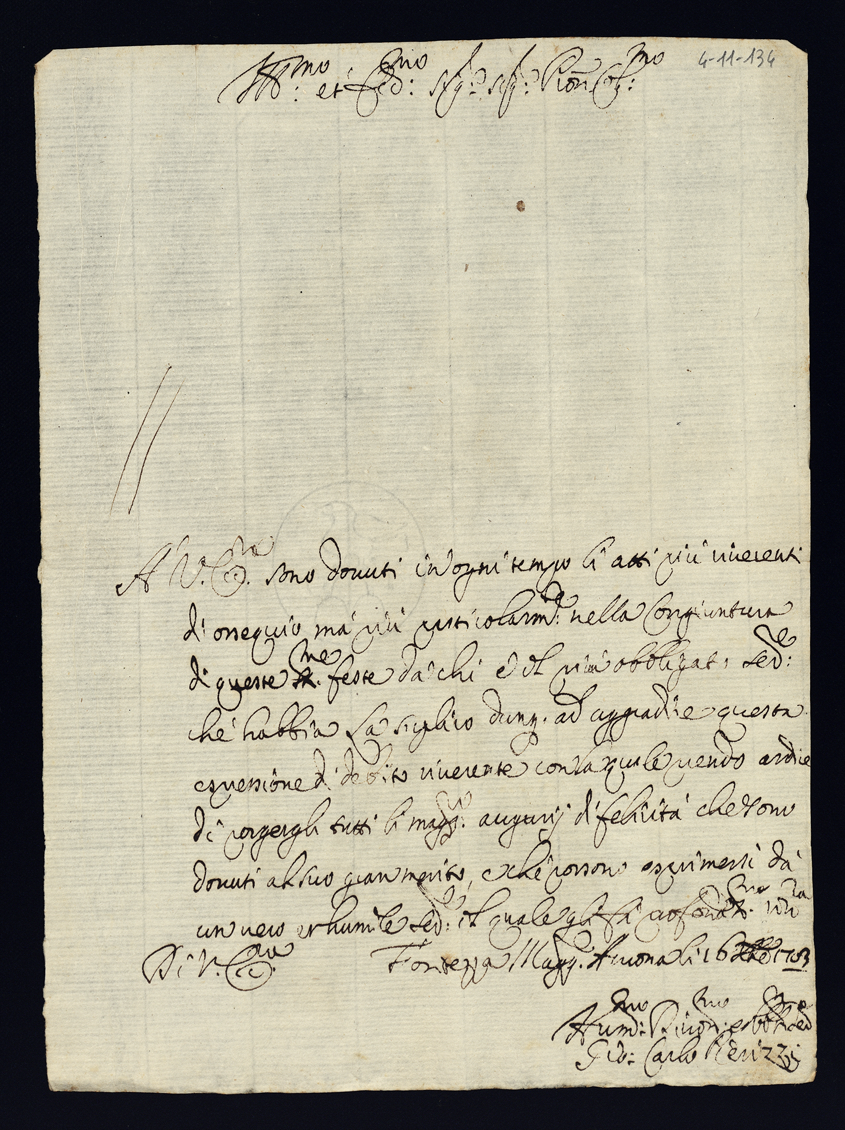 4-11-134
Ill:mo et Ecc:mo Sig:r Sig:r Pron Col:mo
A' V. Ecc:za sono douuti in ogni tempo li atti più riuerenti
di ossequio, mà più particolarm:te nella congiuntura
di queste S:me feste dà chi è il più obbligat: Ser:re
che habbia. La suplico dunq. ad aggradire questa
espressione di debito riuerente con la quale rendo ardire
di porgergli tutti li magg:ri augurij di felicità che sono
douuti al suo gran merito, e che possono esprimersi dà
un uero et humile Ser:re il quale gli fà profond:ma riu:za
Di V. Ecc:za Fortezza Magg:re Ancona li 16 Xbre 1703
Hum:mo Diuot:mo et Obb:mo Ser:re
Gio: Carlo Pierizzi